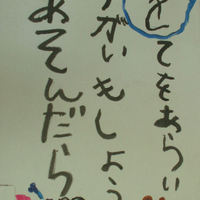 てをあらい
がいもしよう
あそんだら